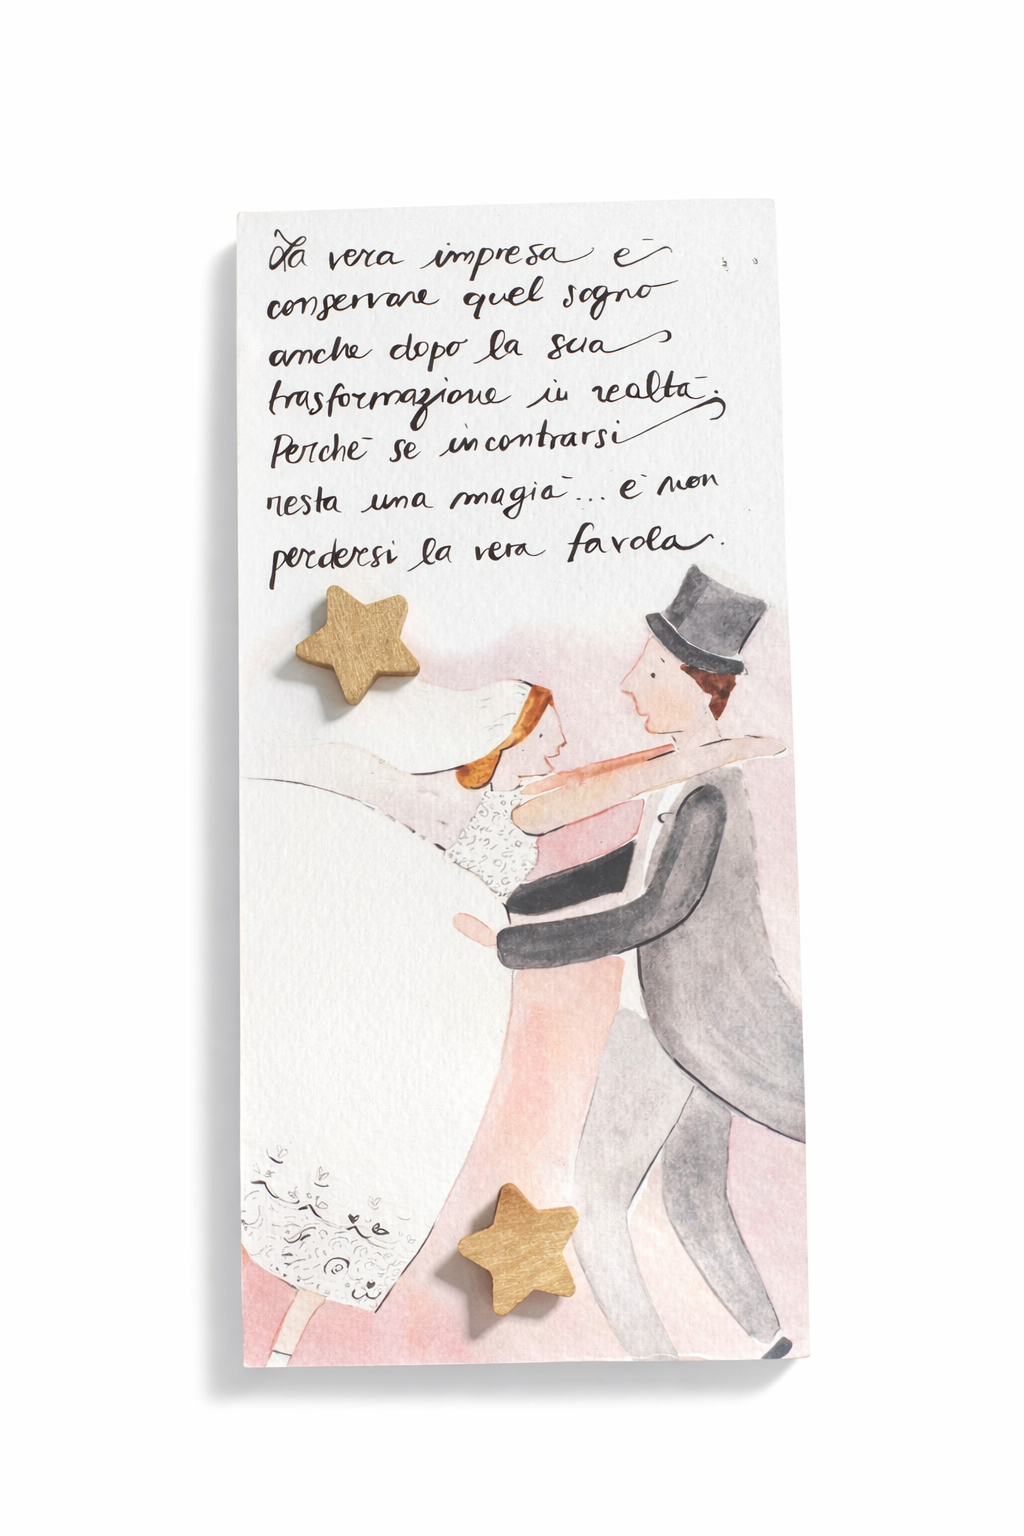 La vera impresa è
conservare quel sogno
anche dopo la sua
trasformazione in realtà.
Perchè se incontrarsi
resta una magia... è non
perdersi la vera favola.